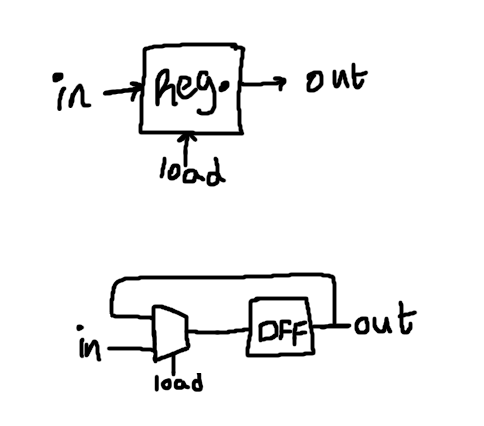 in Reg. out
load
DFF out
in
load